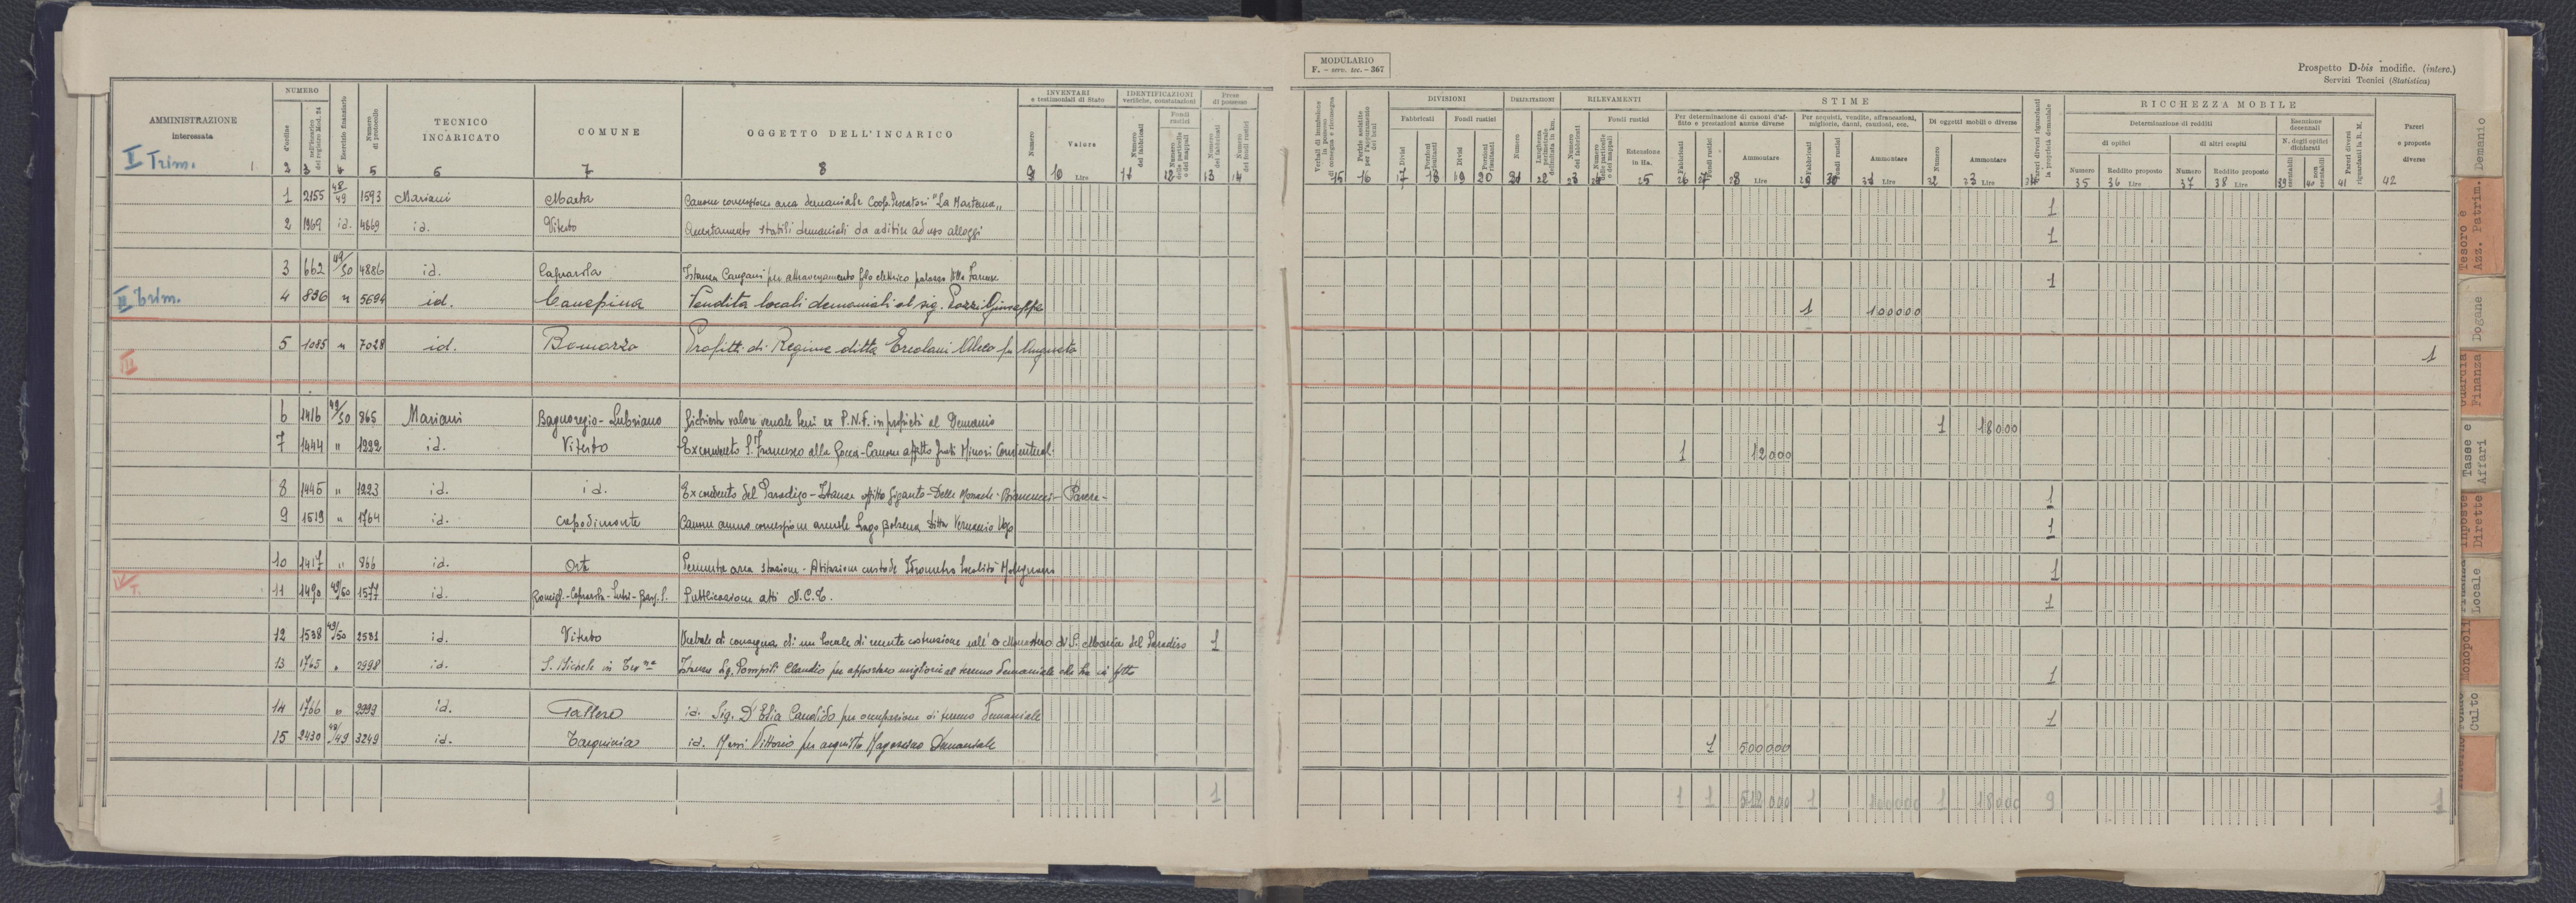 MODULARIO
F. - serv. tec. - 367
Prospetto D-bis modific. (interc.)
Servizi Tecnici (Statistica)
AMMINISTRAZIONE
interessata
NUMERO
d'ordine
dell'incarico
del registro Mod. 24
Esercizio finanziario
Numero
di protocollo
TECNICO
INCARICATO
COMUNE
OGGETTO DELL'INCARICO
INVENTARI
e testimoniali di Stato
Numero
Valore
Lire
IDENTIFICAZIONI
verifiche, constatazioni
Numero
dei fabbricati
Fondi
rustici
Numero
delle particelle
o dei mappali
Prese
di possesso
Numero
dei fabbricati
Numero
dei fondi rustici
Verbali di immissione
in possesso
di consegna e riconsegna
Perizie suddite
per l'appuramento
dei beni
DIVISIONI
Fabbricati
Fondi rustici
Divisi
Porzioni
risultanti
Divisi
Porzioni
risultanti
DELIMITAZIONI
Numero
Lunghezza
perimetrale
delimitata in km.
RILEVAMENTI
Numero
dei fabbricati
Fondi rustici
Numero
delle particelle
o dei mappali
Estensione
in Ha.
STIME
Per determinazione di canoni d'af-
fitto e prestazioni annue diverse
Fabbricati
Fondi rustici
Ammontare
Lire
Per acquisti, vendite, affrancazioni,
migliorie, danni, cauzioni, ecc.
Fabbricati
Fondi rustici
Ammontare
Lire
Di oggetti mobili e diverse
Numero
Ammontare
Lire
Pareri diversi riguardanti
la proprietà demaniale
RICCHEZZA MOBILE
Determinazione di redditi
di opifici
Numero
Reddito proposto
Lire
di altri cespiti
Numero
Reddito proposto
Lire
Esenzione
decennali
N. degli opifici
dichiarati
esentabili
non
esentabili
Pareri diversi
riguardanti la R. M.
Pareri
e proposte
diverse
I Trim.
2 3 4 5 6 7 8 9 10 11 12 13 14 15 16 17 18 19 20 21 22 23 24 25 26 27 28 29 30 31 32 33 34 35 36 37 38 39 40 41 42
1 2155 48/49 1593 Mariani Marta Canone concessione area demaniale Coop. Pescatori "La Martana" 1
2 1969 id. 4669 id. Viterbo stabili demaniali da adibire ad uso alloggi 1
3 662 49/50 4886 id. Caprarola Istanza Cangani per attraversamento filo elettrico palazzo Villa Farnese 1
II Trim.
4 836 " 5694 id. Canepina Vendita locali demaniali al sig. Pozzi Giuseppe 1 100000
5 1085 " 7028 id. Bomarzo Profitti di Regime ditta Ercolani Alceo fu Augusto 1
III
6 1416 49/50 865 Mariani Bagnoregio - Lubriano Richiesta valore venale beni ex P.N.F. in proprietà al Demanio 1 18000
7 1444 " 1222 id. Viterbo Ex convento S. Francesco alla Rocca - Canone affitto frati Minori Conventuali 1 12000
8 1445 " 1223 id. id. Ex convento del Paradiso - Istanze affitto Giganto - Delle Monache - - Parere - 1
9 1519 " 1764 id. Capodimonte Canone annuo concessione arenile Lago Bolsena ditta Ugo 1
10 1417 " 866 id. Orte Permuta area stazione - Abitazione custode Idrometro località 1
IV T.
11 1490 49/50 1577 id. Roncigl. - Caprarola - Pubblicazione atti N.C.E. 1
12 1538 49/50 2531 id. Viterbo Verbale di consegna di un locale di recente costruzione nell'ex Monastero di S. Maria del Paradiso 1
13 1765 " 2998 id. S. Michele in Ter.na Istanza Sig. Pompili Claudio per apportare migliorie al terreno demaniale che ha in fitto 1
14 1766 " 2999 id. Fallero id. Sig. D'Elia Candido per occupazione di terreno demaniale 1
15 2430 48/49 3249 id. Tarquinia id. Vittorio per acquisto Magazzino Demaniale 1 500000
1 1 1 512000 1 100000 1 18000 9 1
Demanio
Tesoro e
Azz. Patrim.
Dogane
Guardia
Finanza
Tasse e
Affari
Imposte
Dirette
Finanza
Locale
Monopoli
Culto